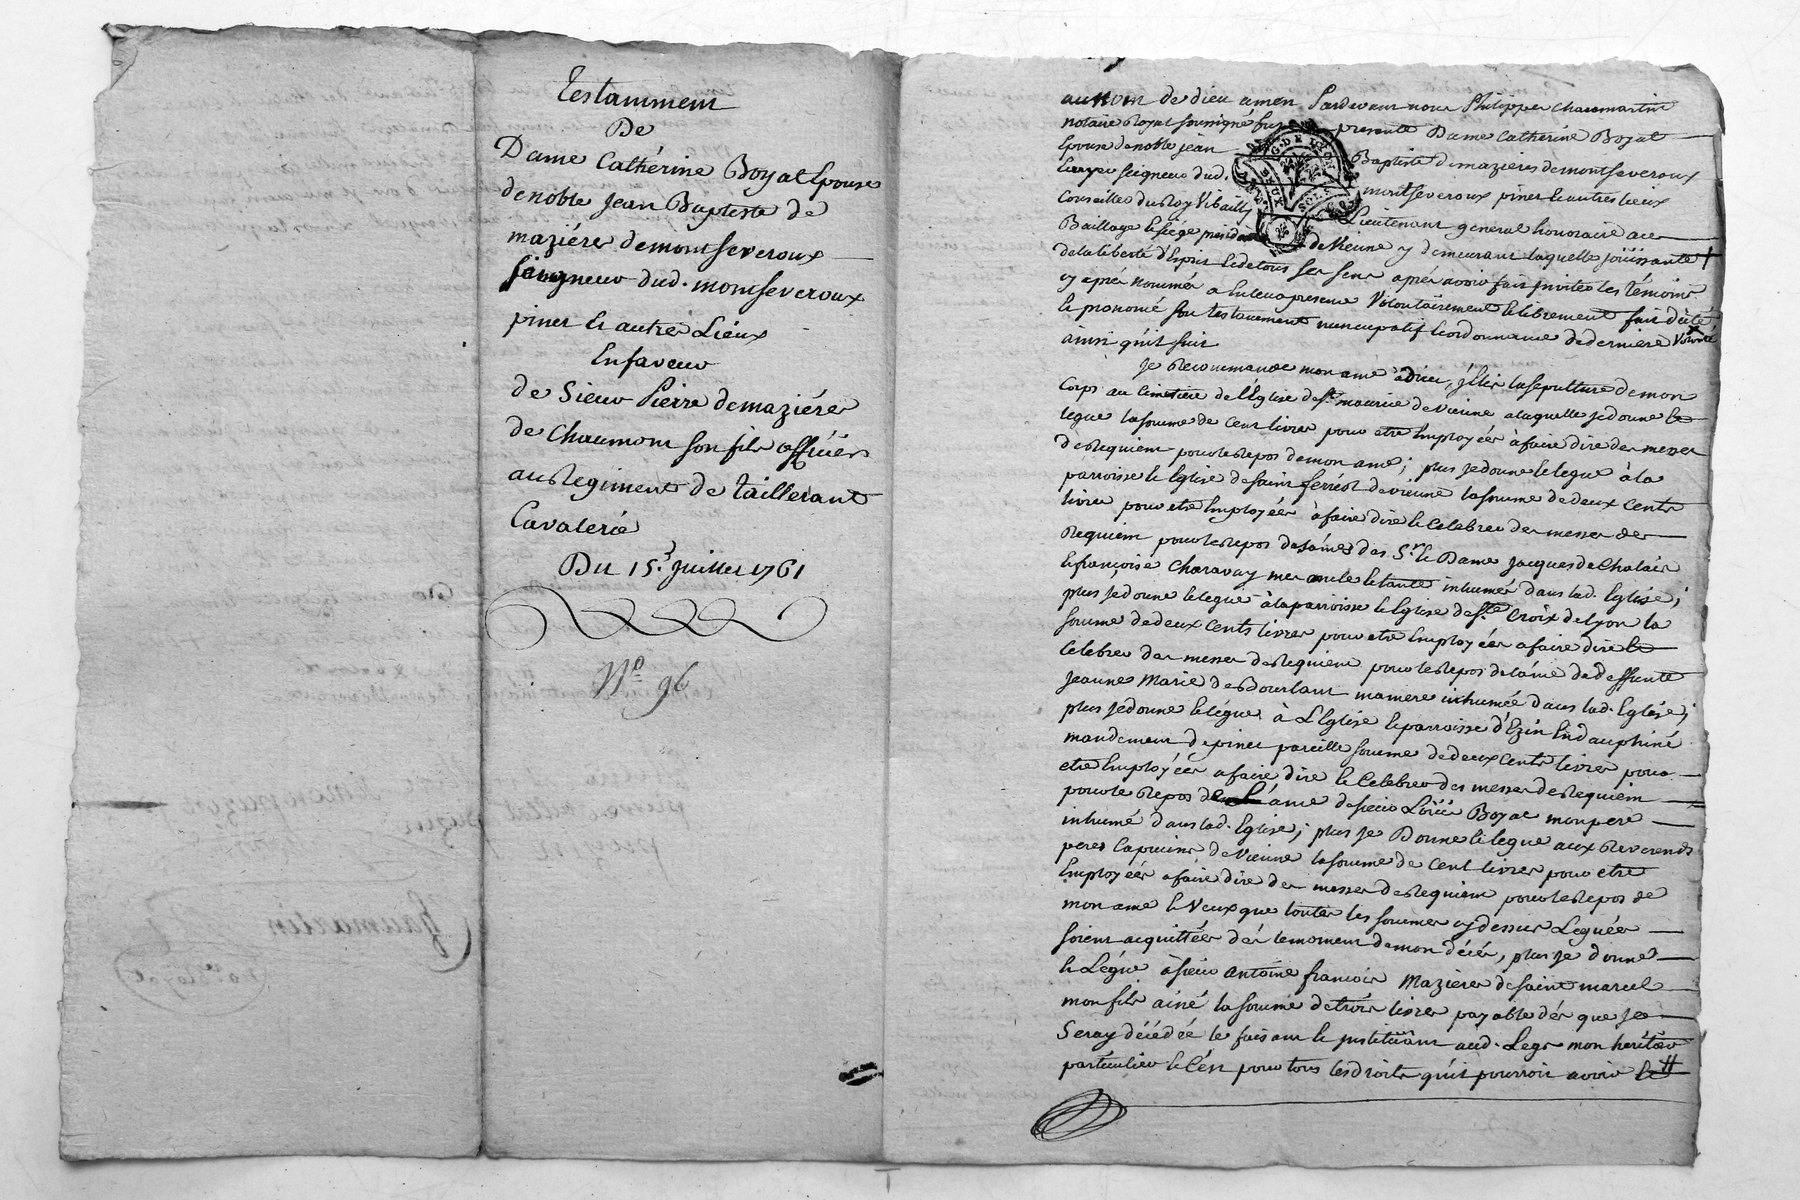 Testamment
De
Dame Cathérine Boyat Epouse
de noble Jean Baptiste de
maziéres de montseveroux
seigneur dud. montseveroux
pinet & autrés Liéux
En faveur
de Sieur Pierre demaziéres
de chaumont son fils officiér
au Regiment de taillerant
Cavalerie
Du 15.e Juillet 1761
N.o 96
au nom de dieu amen Pardevant nous Philippes chaumartin
notaire Royal soussigné fut presente Dame Catherine Boyat
Epouse de noble jean Baptiste demazieres demontseveroux
Ecuyer seigneur dud. montseveroux pinet & autres lieux
Conseiller du Roy Vibailly Lieutenant general honoraire au
Bailliage & siege présidial de Vienne y demeurant laquelle joüissante
de la liberté d'Esprit & de tous ses sens aprés avoir fait inviter les témoins
cy aprés nommés a en leur presence Volontairement & librement fait dicté
& prononcé son testament nuncupatif & ordonnance de derniere Volonté
ainsi qu'il suit
Je Recommande mon ame à Dieu, j'Elis la sépulture de mon
Corps au Cimetiere de l'Eglise de St. maurice de Vienne a laquelle je donne &
legue la somme de Cent livres pour etre Employées à faire dire des messes
de Requiem pour le Repos de mon ame; plus je donne & legue à la
parroisse & Eglise de saint ferréol de vienne la somme de deux Cents
livres pour etre Employées à faire dire & Celebrer des messes de
Requiem pour le Repos des ámes des Sr. & Dame Jacques de Chalais
& françoise Charavay mes oncle & tante inhumés dans lad. Eglise;
plus je donne & legue à la parroisse & Eglise de Ste. Croix de lyon la
somme de deux Cents livres pour etre Employées a faire dire &
Celebrer des messes de Requiem pour le Repos de l'ame de deffunte
Jeanne Marie de Bourlant ma mere inhumée dans lad. Eglise;
plus je donne & légue à L'Eglise & parroisse d'Ezin En dauphiné
mandement de pinet pareille somme de deux Cents livres pour
etre Employées a faire dire & Celebrer des messes de Requiem
pour le Repos de L'áme de sieur Loüis Boyat mon pere
inhumé dans lad. Eglise; plus je Donne & legue aux Reverends
peres Capucins de Vienne la somme de Cent livres pour etre
Employées a faire dire des messes de Requiem pour le Repos de
mon ame & Veux que toutes les sommes cy dessus Leguées
soient acquittées dés le moment de mon décés, plus je donne
& Légue à sieur antoine francois Mazieres de saint marcel
mon fils ainé la somme de trois livres payable dés que je
Seray décédée le faisant & instituant aud. Legs mon heritier
particulier & C'est pour tous les droits qu'il pourroit avoir &